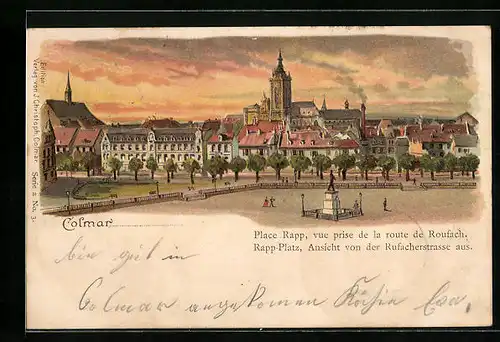 Edition
Verlag von J. Christoph, Colmar. Serie 2 No. 3.
Colmar
Place Rapp, vue prise de la route de Roufach.
Rapp-Platz, Ansicht von der Rufacherstrasse aus.
bin in
Colmar angekommen